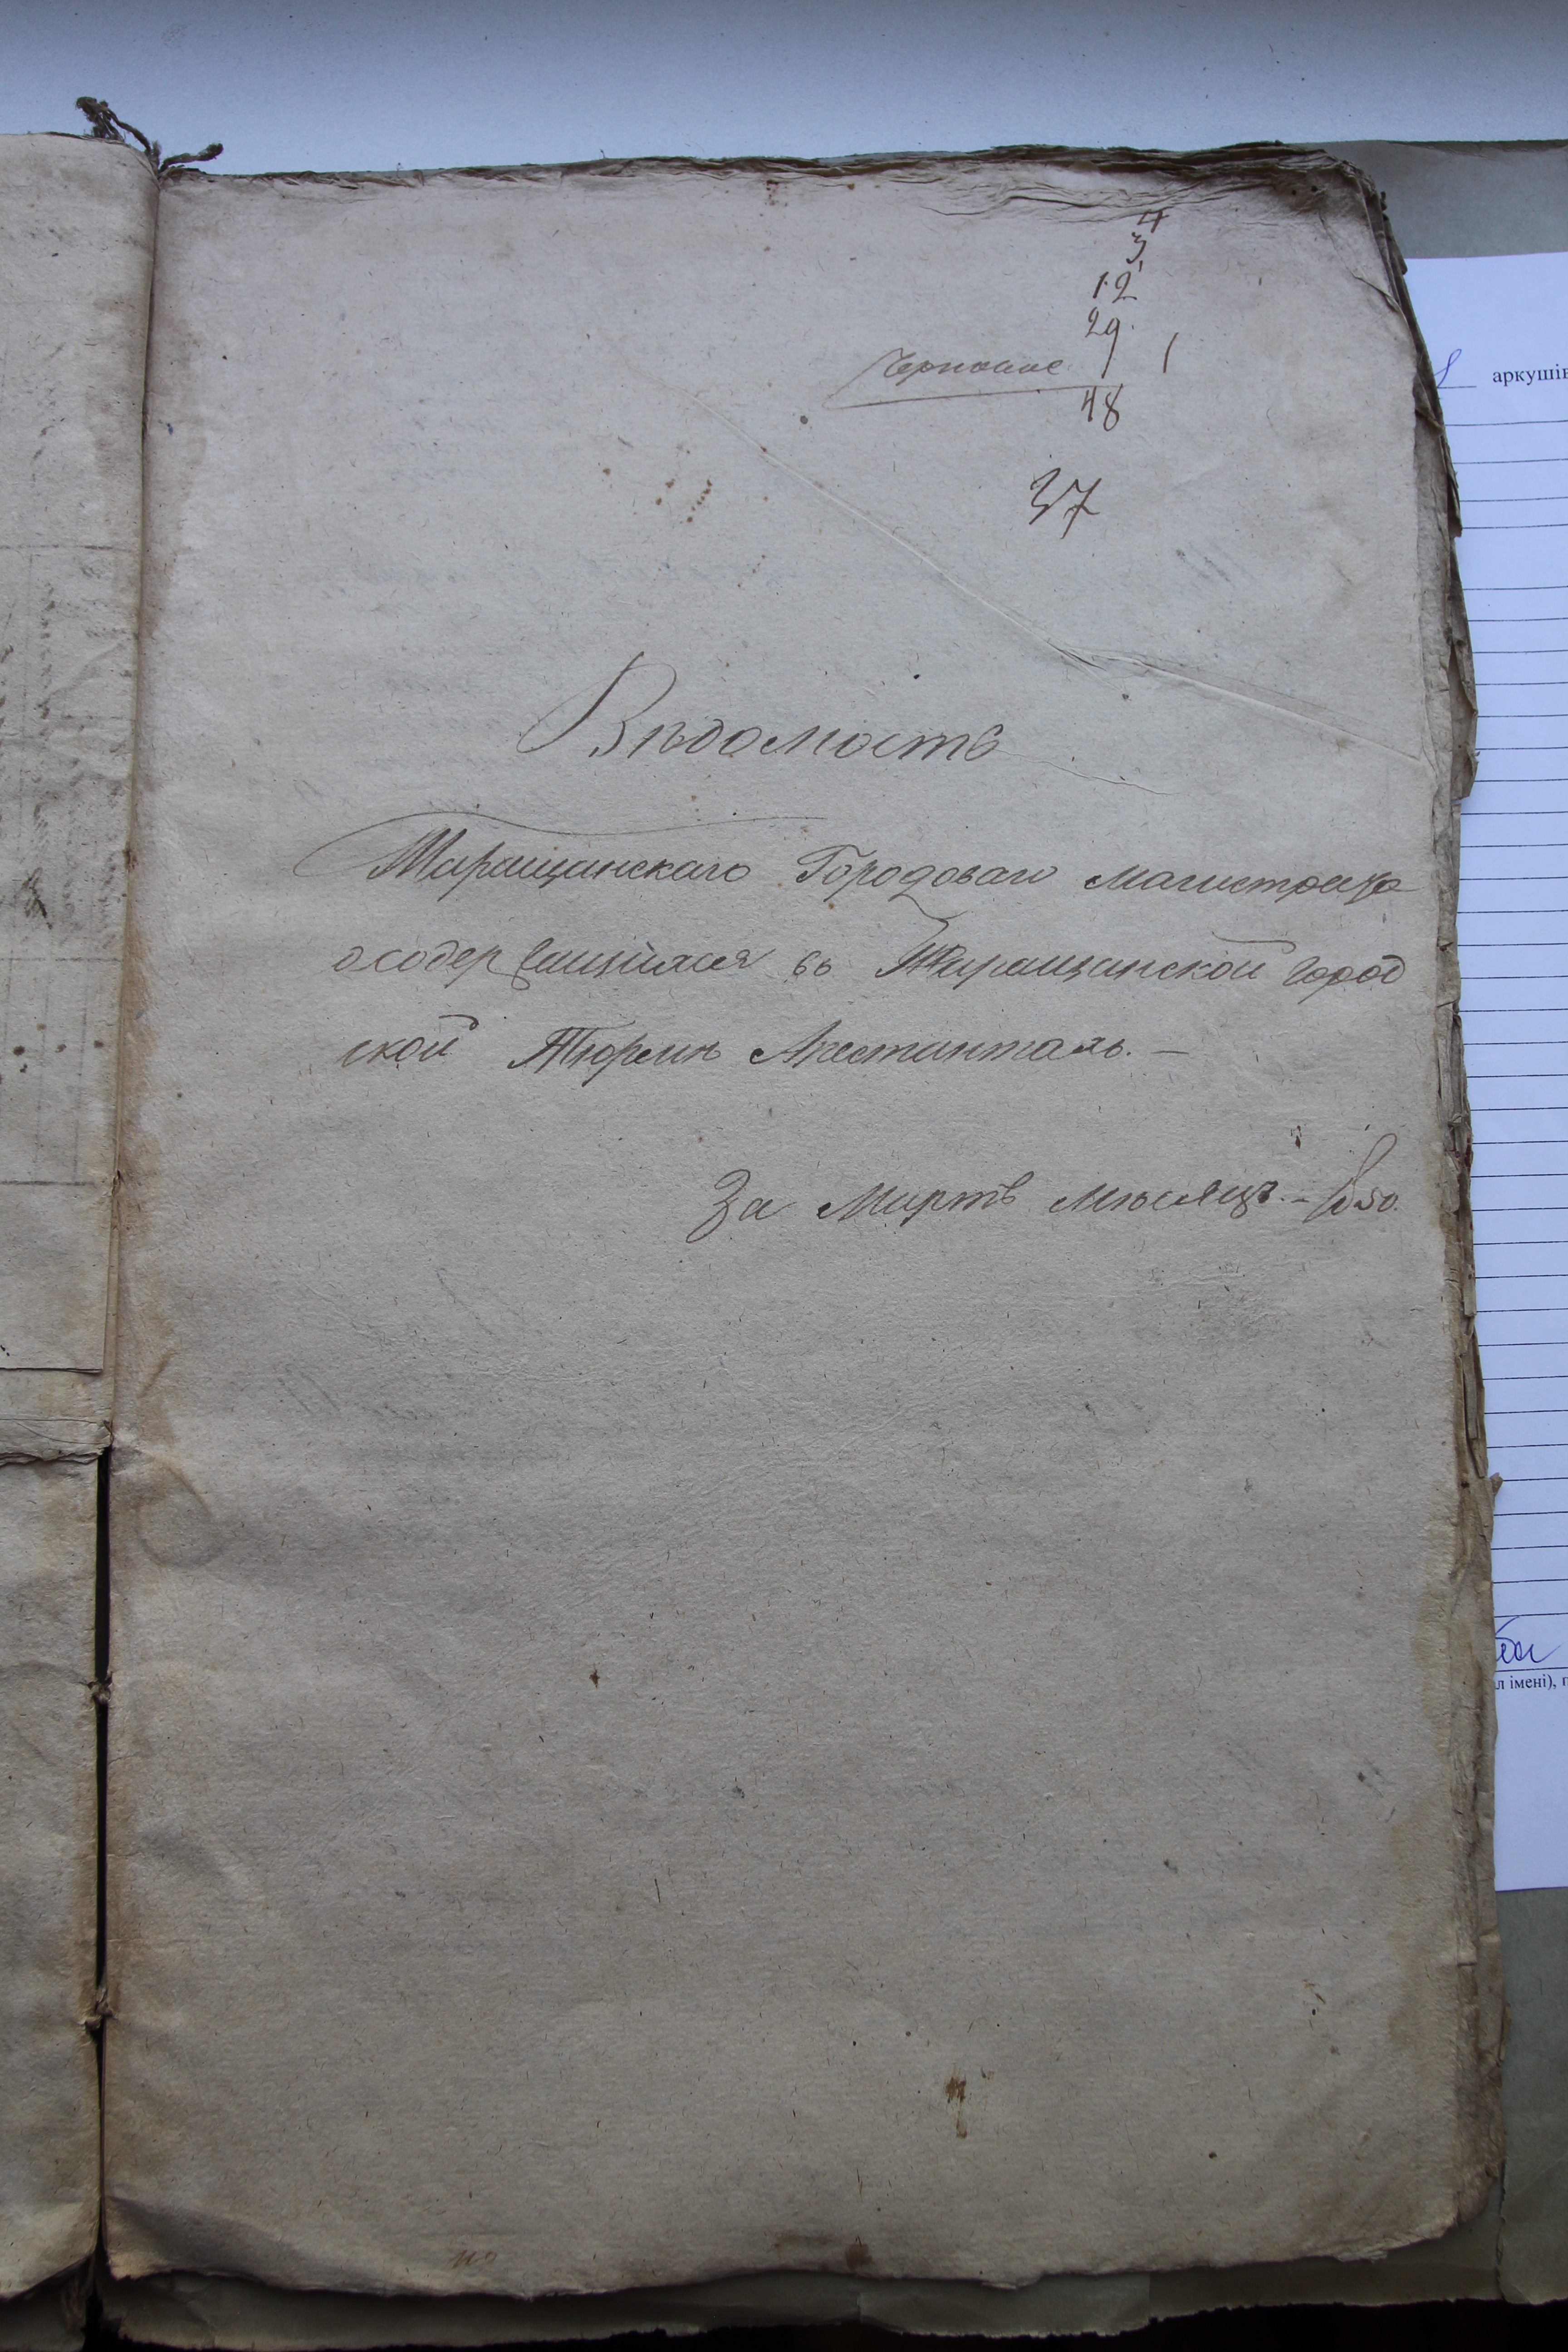 4
3
12
29
1
48
37
Вѣдомость
Таращанскаго Городоваго магистрата
осодержащихся въ Таращанской Город
ской Тюрьмѣ Арестантахъ. —
За Мартъ мѣсяцъ. — 1850.
аркушів
л імені), п